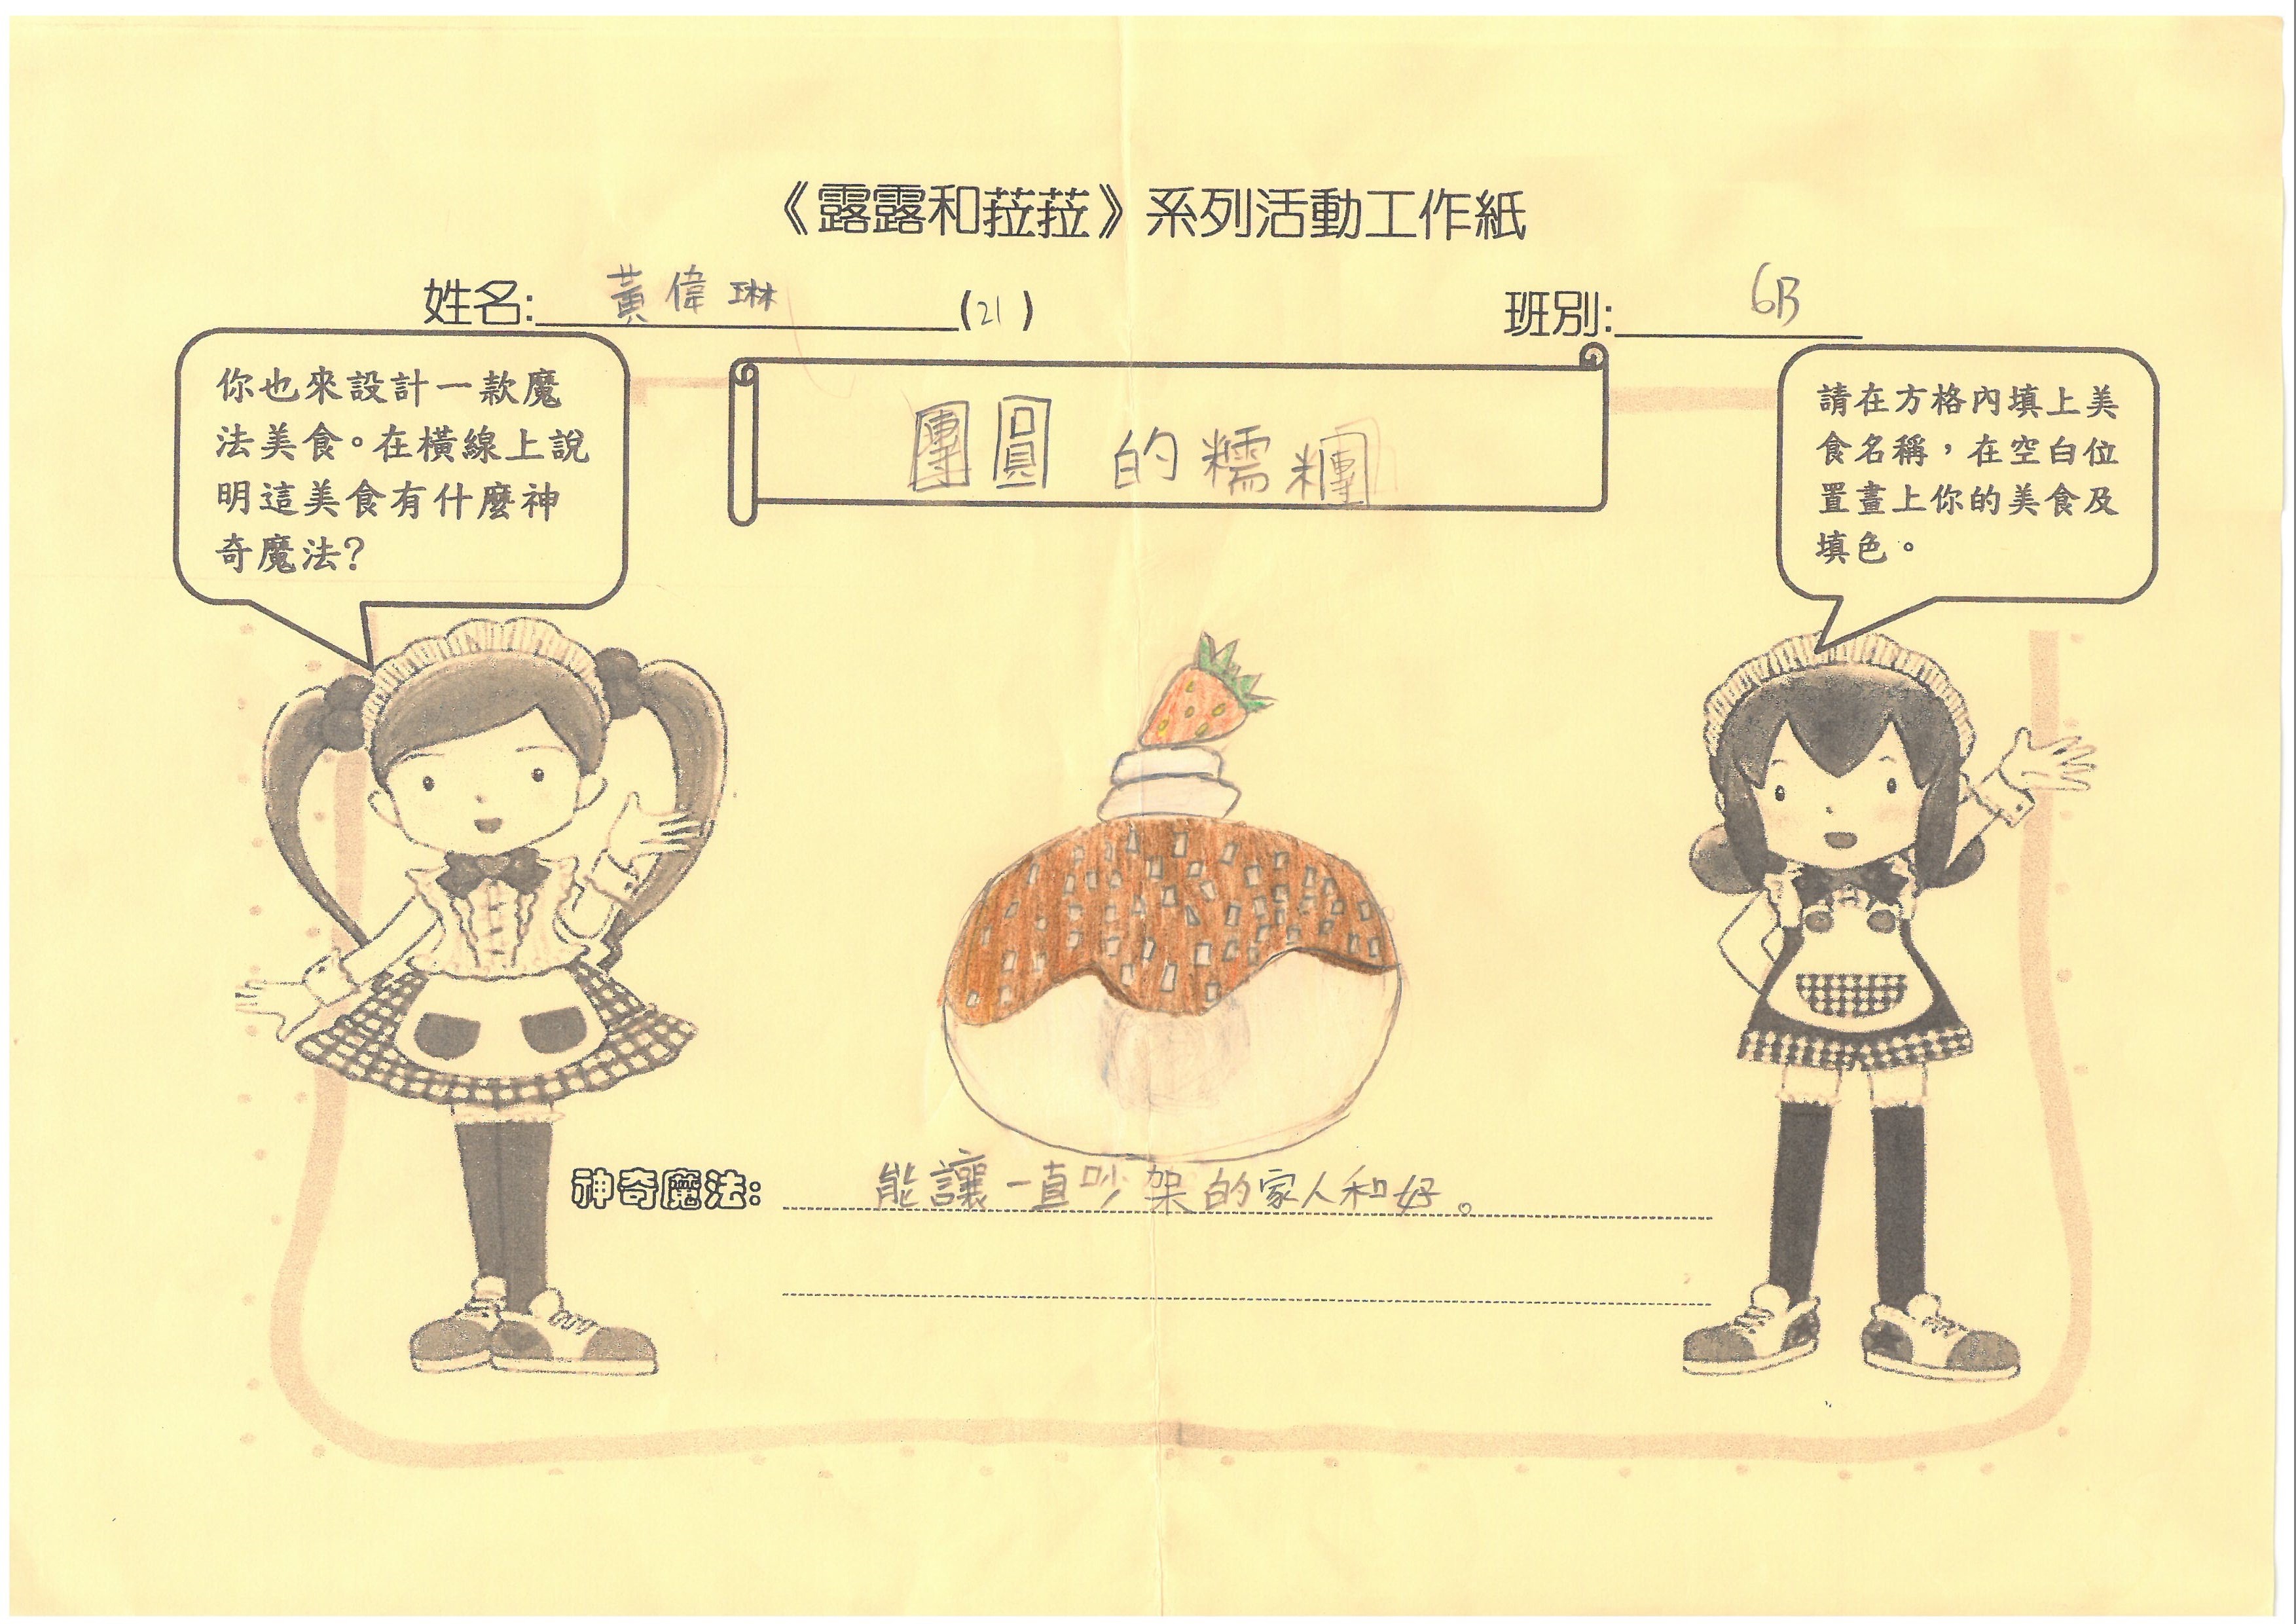 《露露和菈菈》系列活動工作紙
姓名: 黃偉琳 (21)
班別: 6B
你也來設計一款魔
法美食。在橫線上說
明這美食有什麼神
奇魔法?
團圓的糯米團
請在方格內填上美
食名稱，在空白位
置畫上你的美食及
填色。
神奇魔法: 能讓一直吵架的家人和好。